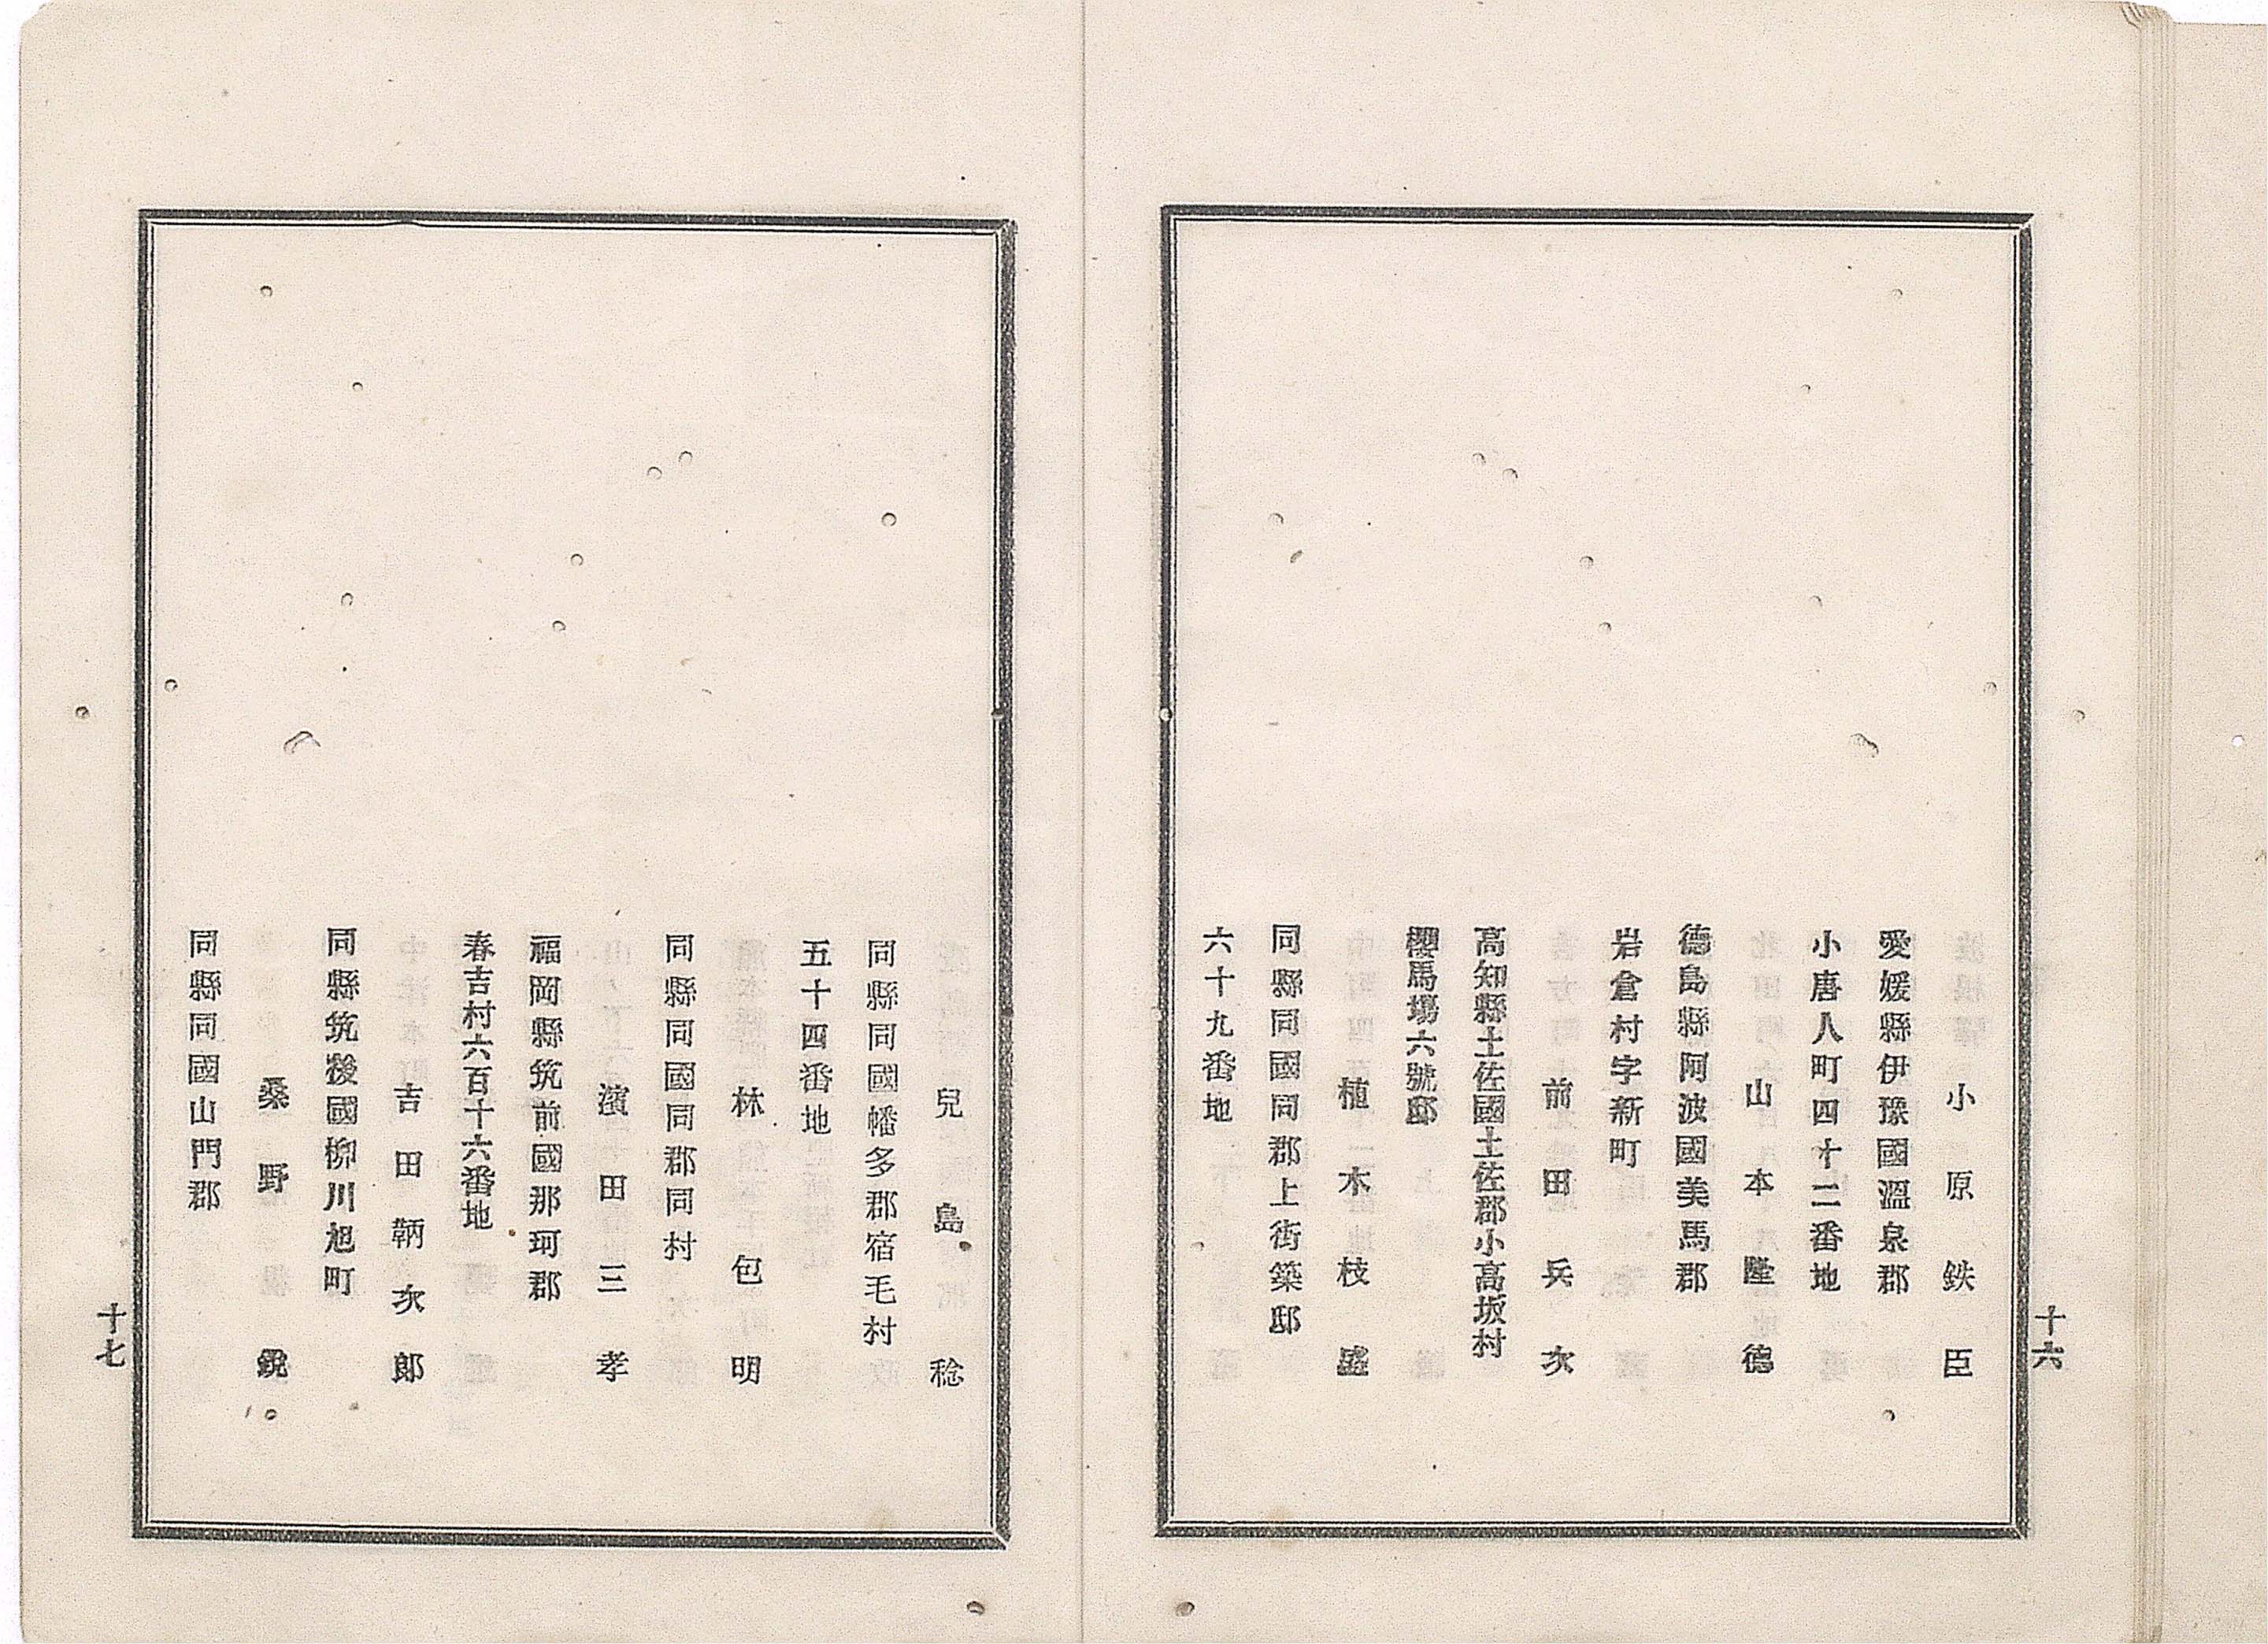 十六
小原鉄臣
愛媛縣伊豫國溫泉郡
小唐人町四十二番地
山本隆德
德島縣阿波國美馬郡
岩倉村字新町
前田兵次
高知縣土佐國土佐郡小高坂村
櫻馬塲六號邸
植木枝盛
同縣同國同郡上街築邸
六十九番地
兒島稔
同縣同國幡多郡宿毛村
五十四番地
林包明
同縣同國同郡同村
濱田三孝
福岡縣筑前國那珂郡
春吉村六百十六番地
吉田鞆次郎
同縣筑後國柳川旭町
桑野銳
同縣同國山門郡
十七